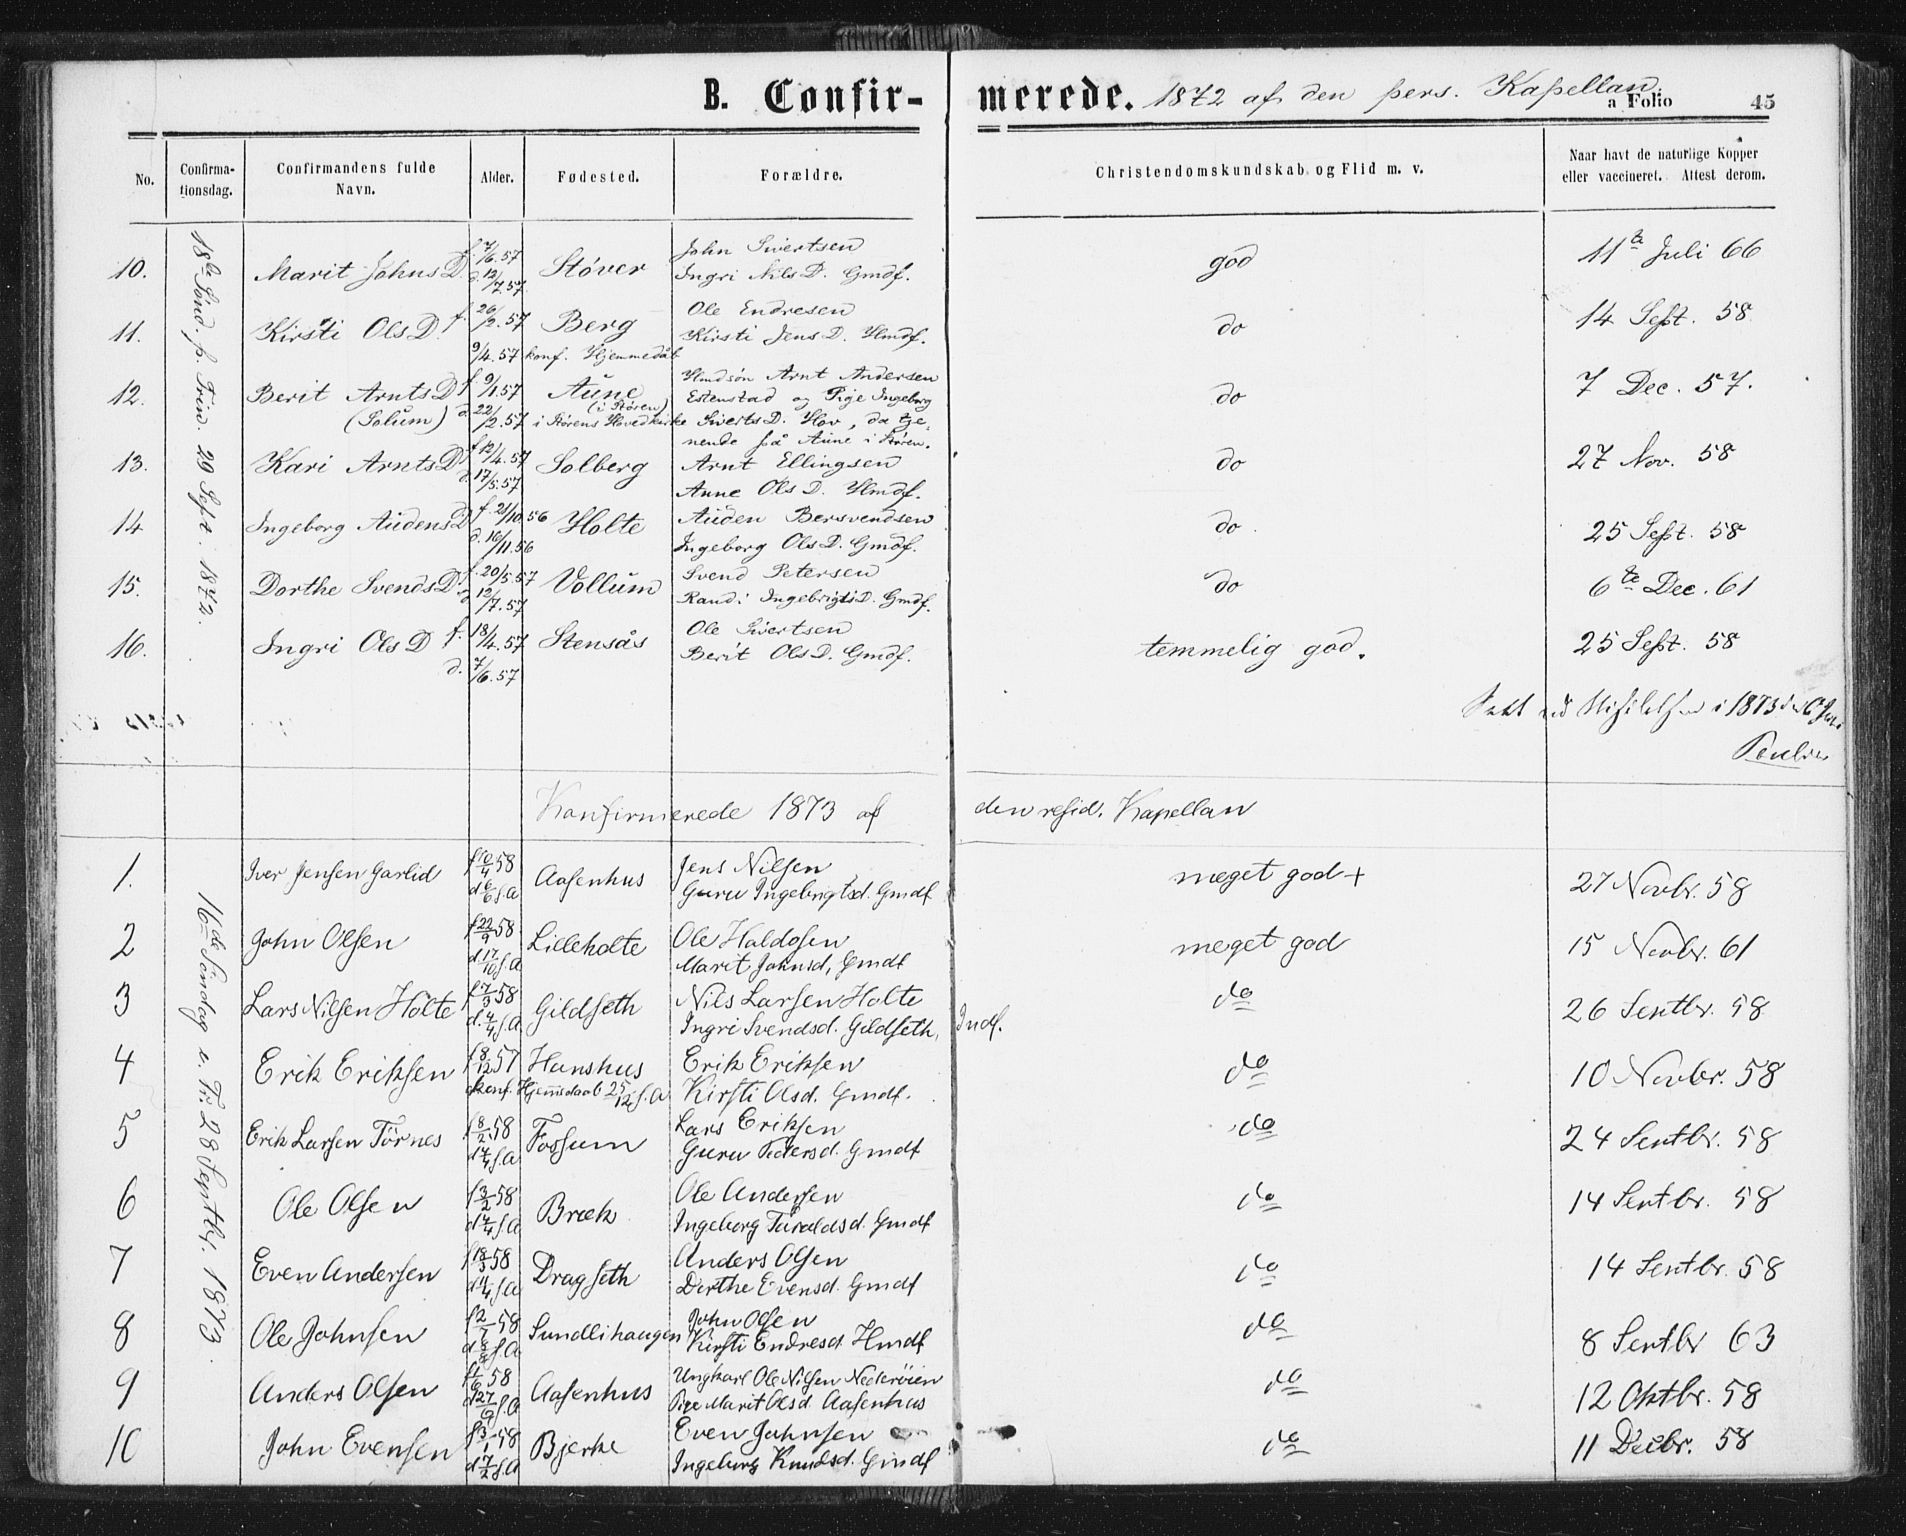 B. Confir-merede. 1872 af den pers. Kapellan.
a Folio 45
No. Confirma-tionsdag. Confirmandens fulde Navn. Alder. Fødested. Forældre. Christendomskundskab og Flid m. v. Naar havt de naturlige Kopper eller vaccineret. Attest derom.
18de Sønd. p. Trin. 29 Sept. 1872.
10. Marit Johns D. f. 7/6.57 Støver John Sivertsen god 11te Juli 66
d. 12/7.57 Ingri Nils D. Gmdf.
11. Kirsti Ols D. f. 26/2.57 Berg Ole Endresen do 14 Sept. 58
9/4.57 konf. Hjemmedåb Kirsti Jens D. Hmdf.
12. Berit Arnts D f. 9/1.57 Aune Hmdsøn Arnt Andersen do 7 Dec. 57.
(Solum) d. 22/2.57 (i Støren) Estenstad og Pige Ingeborg
i Størens Hovedkirke Siverts D. Hov, da tje-
nende på Aune i Støren.
13. Kari Arnts D f. 12/4.57 Solberg Arnt Ellingsen do 27 Nov. 58
d. 17/5.57 Anne Ols D. Hmdf.
14 Ingeborg Audens D f. 21/10.56 Holte Auden Bersvendsen do. 25 Sept. 58
d. 16/11.56 Ingeborg Ols D. Gmdf.
15. Dorthe Svends D f. 20/5.57 Vollum Svend Petersen do 6te Dec. 61
d. 12/7.57 Randi Ingebrigts D. Gmdf.
16. Ingri Ols D f. 18/4.57 Stensås Ole Sivertsen temmelig god. 25 Sept. 58
d. 7/6.57 Berit Ols D. Gmdf.
i 1873
Konfirmerede 1873 af den resid. Kapellan
16de Søndag e. Tr. 28 Septbr. 1873.
1. Iver Jensen Garlid f 10/4 58 Aasenhus Jens Nilsen meget god + 27 Novbr. 58
d 6/6 s.A Guru Ingebrigtsd. Gmdf
2 John Olsen f 22/9 58 Lilleholte Ole Haldosen meget god 15 Novbr. 61
d 17/10 s.A Marit Johnsd, Gmdf
3 Lars Nilsen Holte f 7/3 58 Gildseth Nils Larsen Holte do 26 Sentbr. 58
d. 4/4 s.A Ingri Svendsd. Gildseth, Indf.
4 Erik Eriksen f 8/12 57 Hanshus Erik Eriksen do 10 Novbr. 58
konf. Hjemedaab 25/12 s.A Kirsti Olsd. Gmdf.
5 Erik Larsen Törnes f 8/2 58 Fossum Lars Eriksen do 24 Sentbr. 58
s.A Guru Pedersd. Gmdf
6 Ole Olsen f 3/2 58 Bræk Ole Andersen do 14 Sentbr. 58
d 4/4 s.A Ingeborg Turaldsd. Gmdf
7 Even Andersen f 18/3 58 Dragseth Anders Olsen do 14 Sentbr. 58
s.A Dorthe Evensd. Gmdf
8 Ole Johnsen 58 Sundlihaugen John Olsen do 8 Sentbr 63
s.A Kirsti Endresd. Hmdf
9 Anders Olsen 58 Aasenhus Ungkarl Ole Nilsen Nederøien do 12 Oktbr. 58
s.A Pige Marit Olsd. Aasenhus
10 John Evensen f 3/1 58 Bjerke Even Johnsen do 11 Decbr. 58
d 7/2 s.A Ingeborg Knudsd. Gmdf